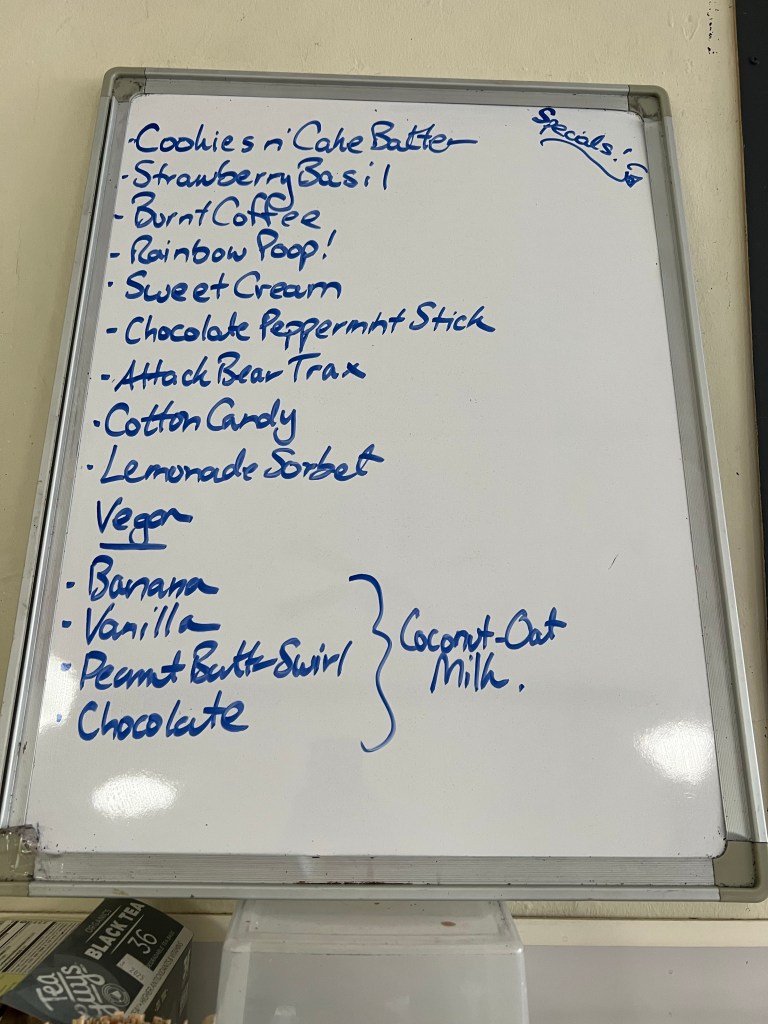 Specials!
- Cookies n' Cake Batter
- Strawberry Basil
- Burnt Coffee
- Rainbow Poop!
· Sweet Cream
- Chocolate Peppermint Stick
- Attack Bear Trax
· Cotton Candy
· Lemonade Sorbet
Vegan
· Banana
· Vanilla
· Peanut Butter Swirl
· Chocolate
Coconut-Oat
Milk.
ORGANIC
BLACK TEA
36
Tea
Guys